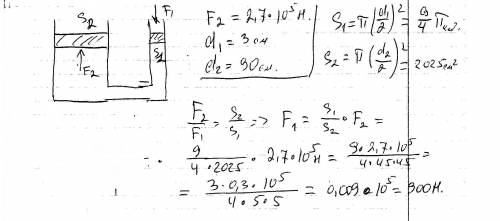 S₂
F₁
S₁
F₂
F₂ = 2,7•10⁵ Н.
d₁ = 3 см
d₂ = 90 см.
S₁ = π(d₁/2)² = 9/4 π см².
S₂ = π(d₂/2)² = 2025 см²
F₂/F₁ = S₂/S₁ => F₁ = S₁/S₂ • F₂ =
9/4•2025 • 2,7•10⁵ Н = 9•2,7•10⁵/4•45•45 =
= 3•0,3•10⁵/4•5•5 = 0,009•10⁵ = 900 Н.